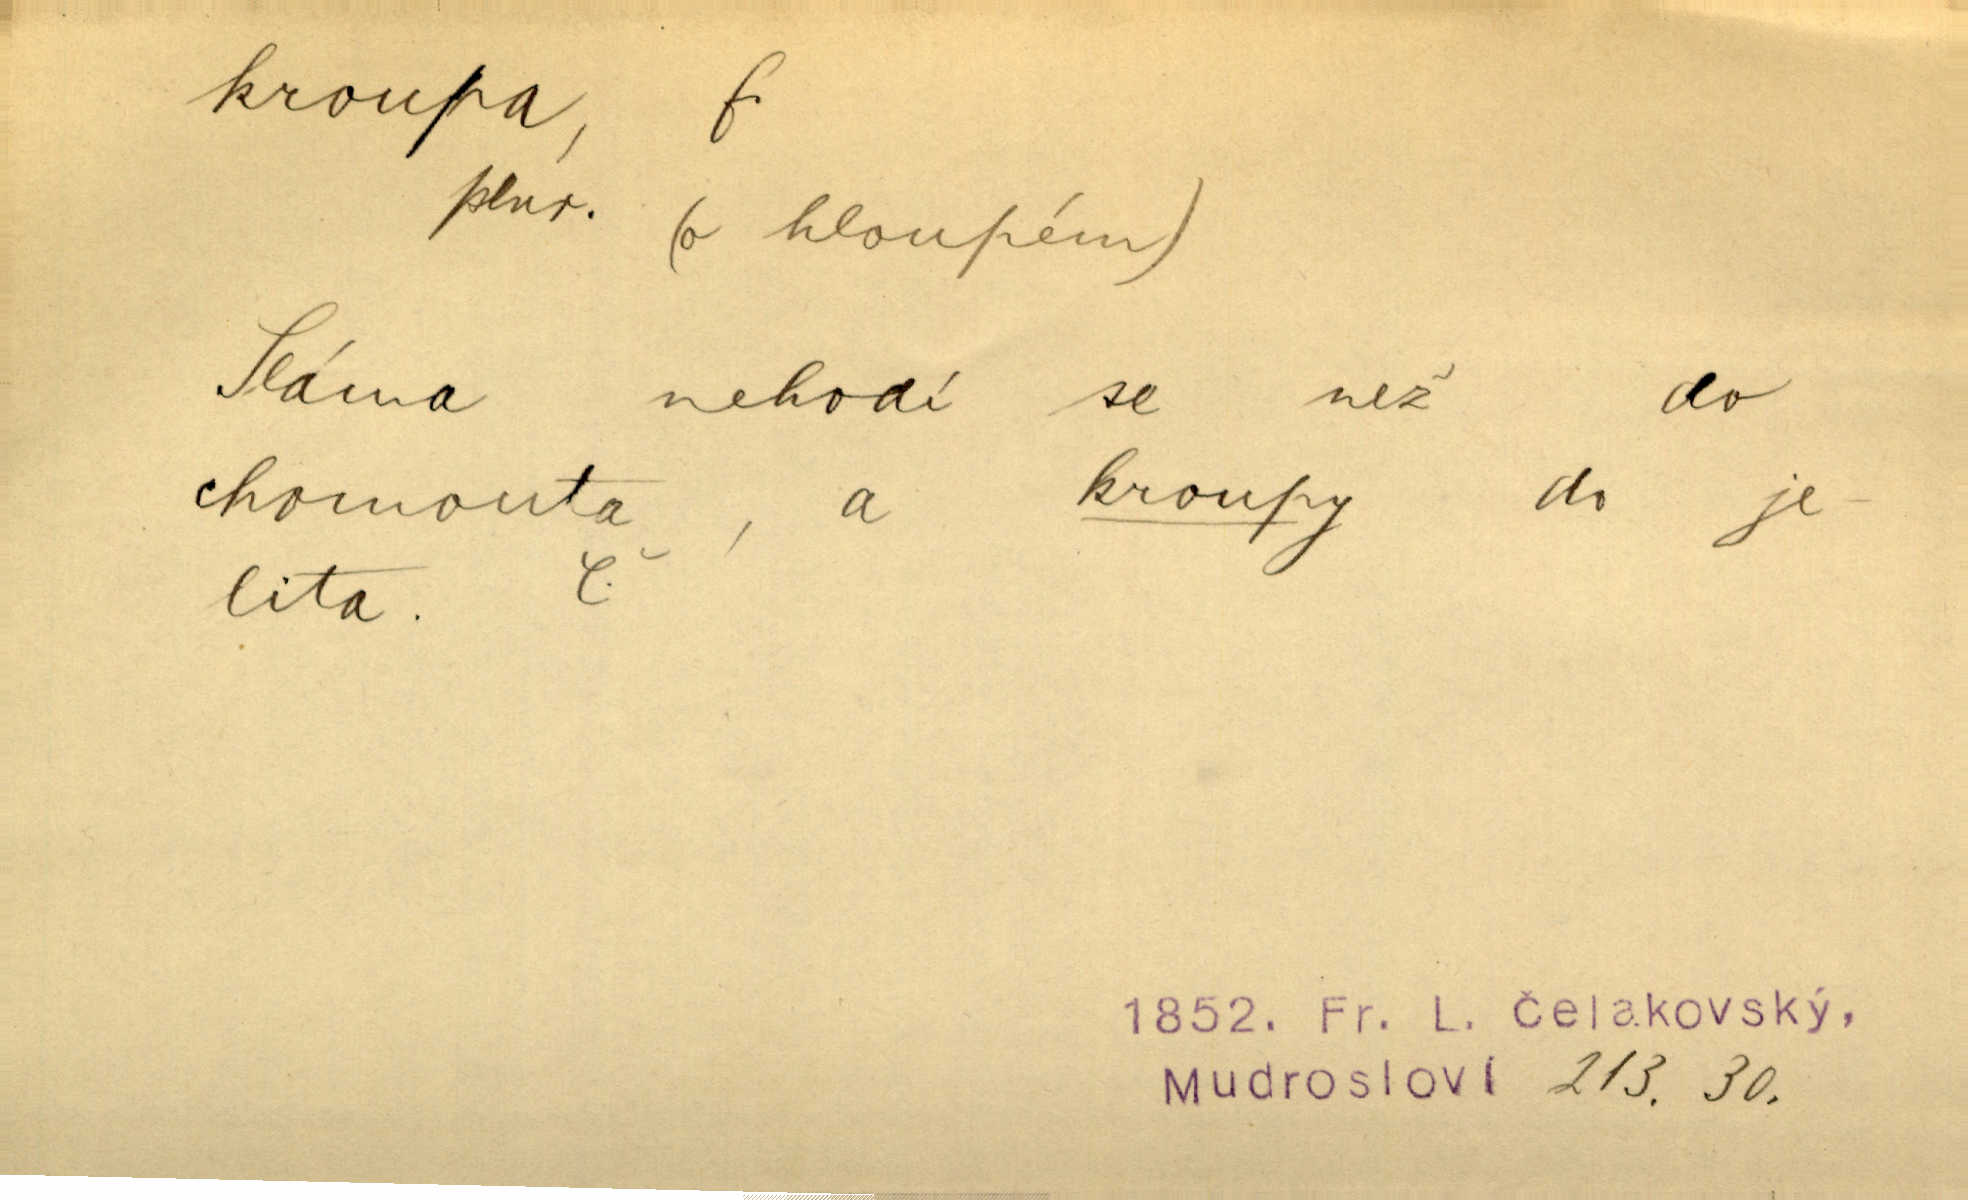 kroupa, f
plur. (o hloupém)
Sláma nehodí se než do
chomouta, a kroupy do je-
lita. Č.
1852. Fr. L. Čelakovský,
Mudrosloví 213. 30.